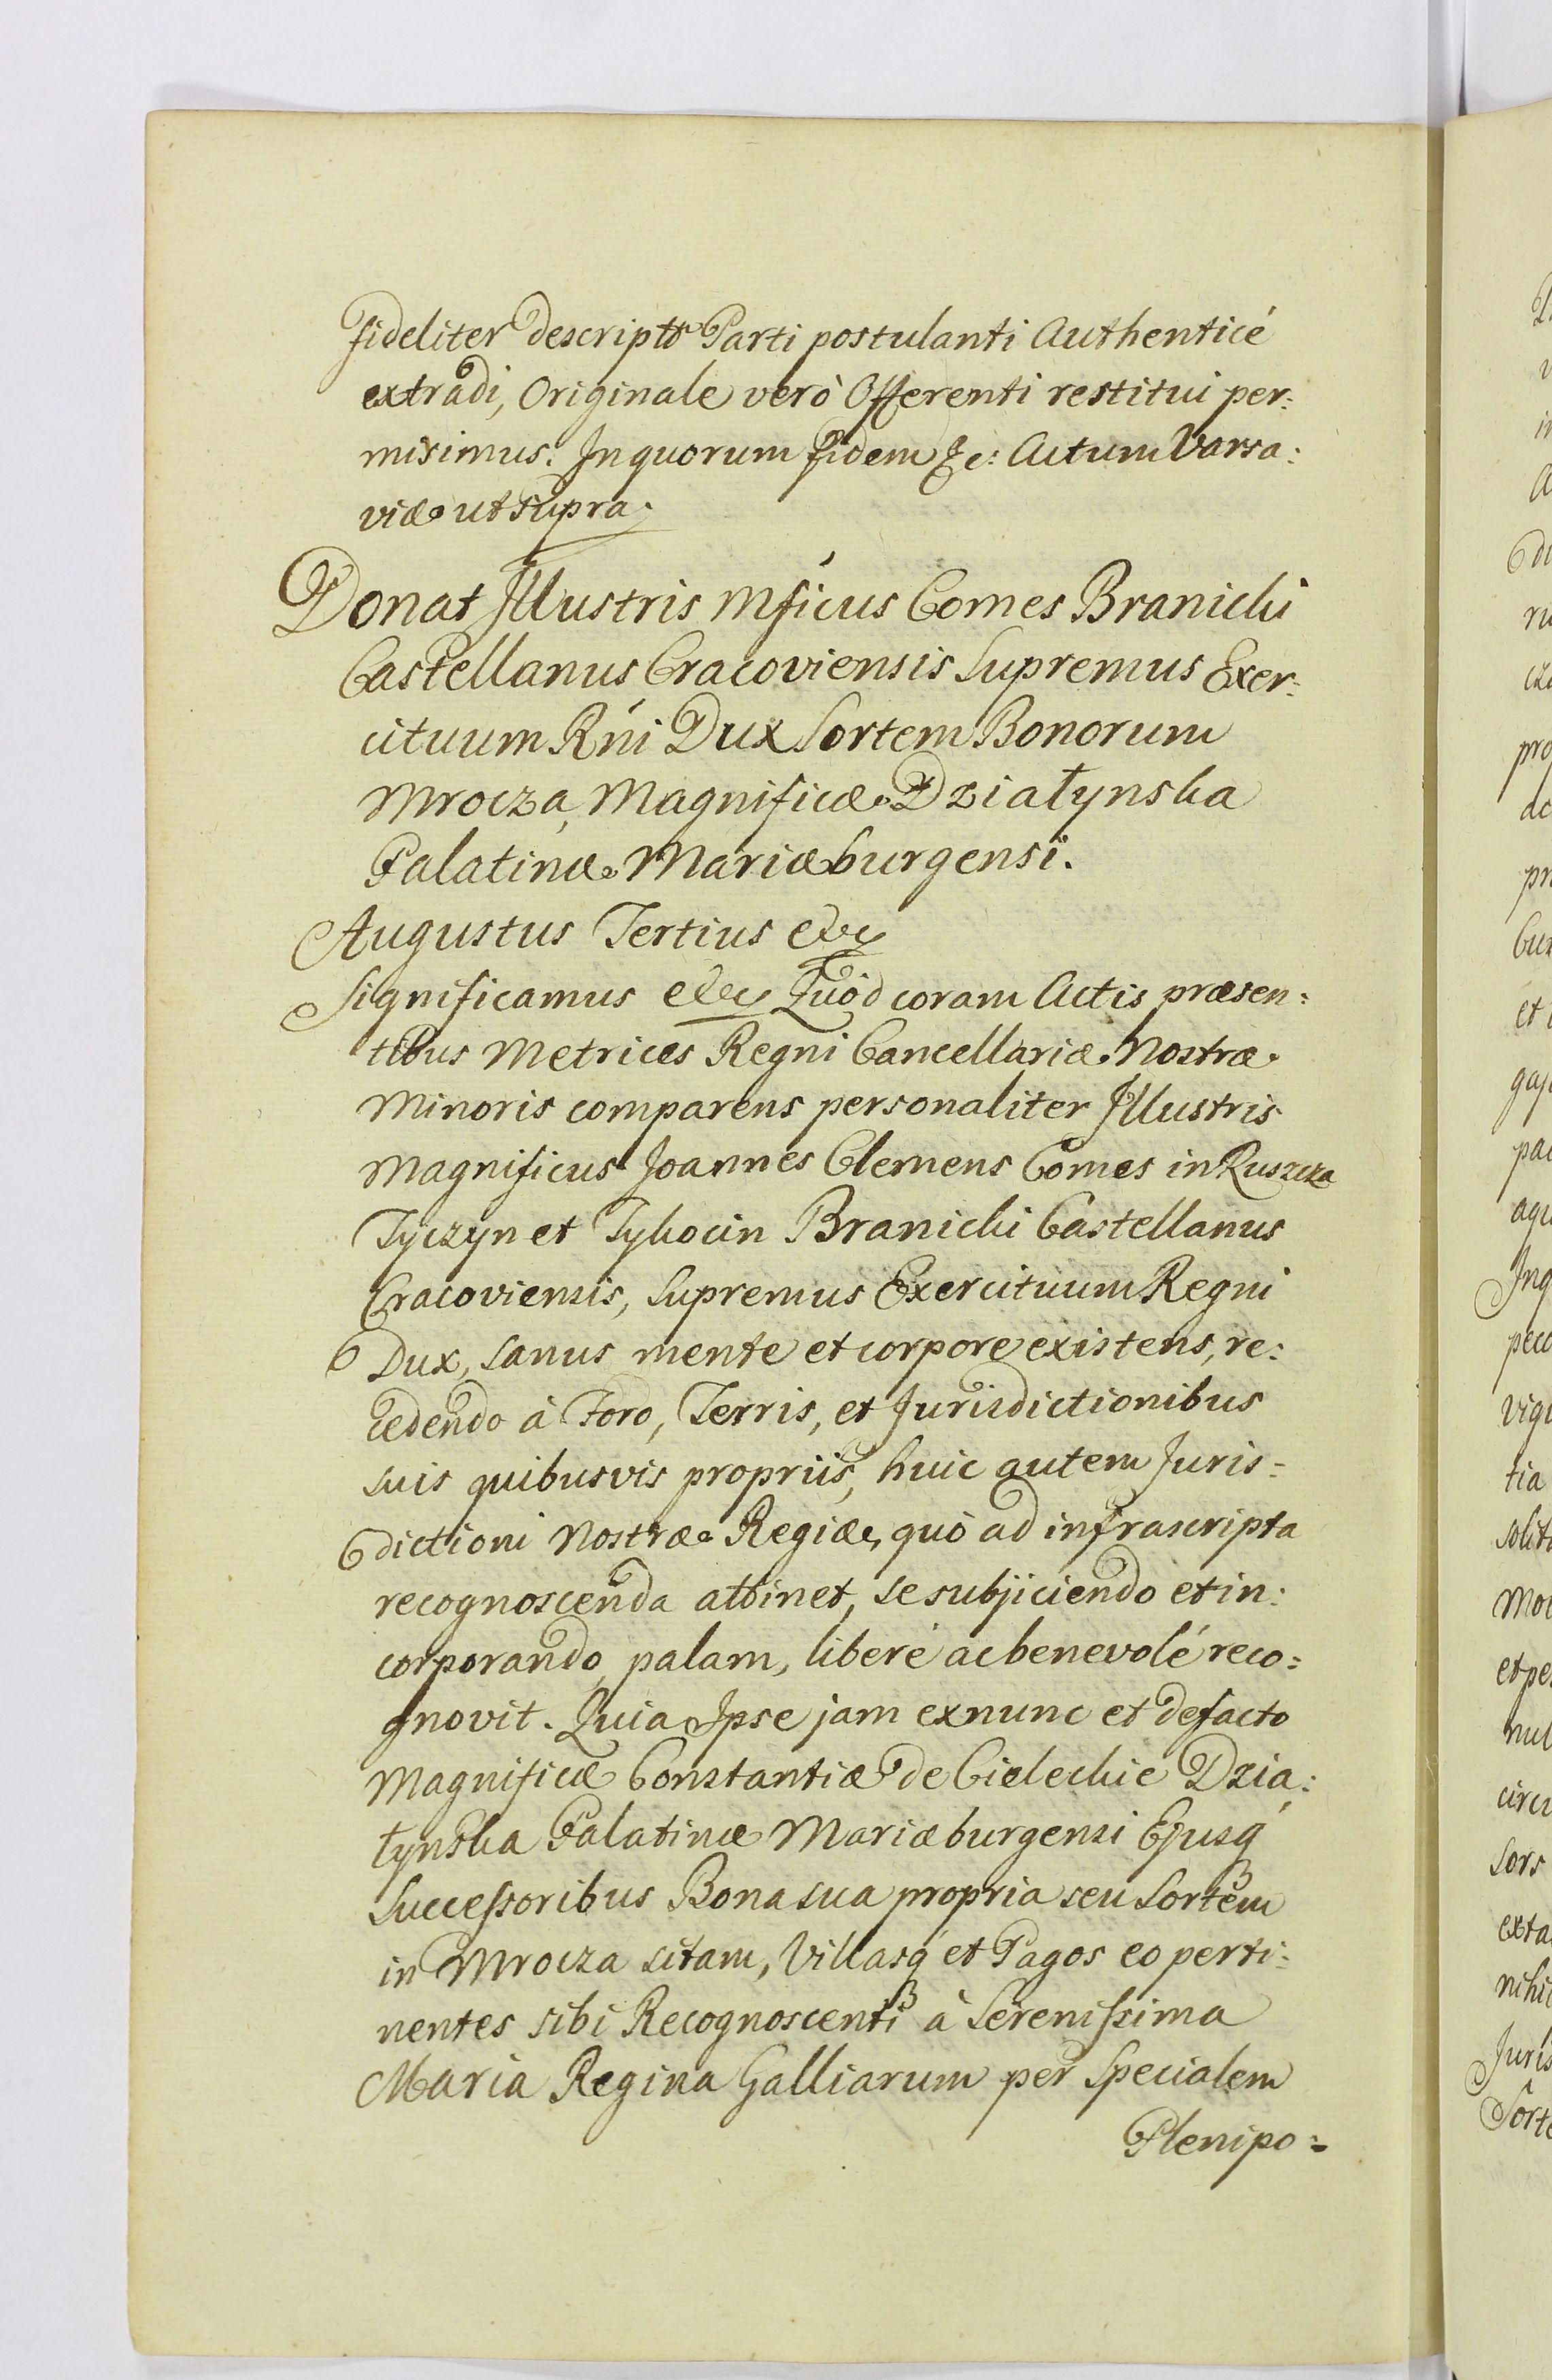 fideliter descripto Parti postulanti Authenticé
extradi, Originale verò Offerenti restitui per:
misimus. In quorum fidem &c: Actum Varsa:
viæ ut supra.
Donat Illustris Mficus Comes Branicki
Castellanus Cracoviensis Supremus Exer:
cituum Rńi Dux Sortem Bonorum
Mrocza, Magnificæ Działynska
Palatinæ Mariæburgensi.
Augustus Tertius etc
Significamus etc Quòd coram Actis præsen:
tibus Metrices Regni Cancellariæ Nostræ
Minoris comparens personaliter Illustris
Magnificus Joannes Clemens Comes in Ruszcza
Tyczyn et Tykocin Branicki Castellanus
Cracoviensis, Supremus Exercituum Regni
Dux, sanus mente et corpore existens, re:
cedendo à Foro, Terris, et Jurisdictionibus
suis quibusvis propriis, huic autem Juris=
dictioni Nostræ Regiæ, quò ad infrascripta
recognoscenda attinet, se subjiciendo et in:
corporando, palam, liberé ac benevolé reco:
gnovit. Quia Ipse jam exnunc et defacto
Magnificæ Constantiæ de Cieleckie Dzia:
łynska Palatinæ Mariæburgensi Ejusq́
Successoribus Bona sua propria seu Sortem
in Mrocza sitam, Villasq́ et Pagos eo perti:
nentes sibi Recognoscenti à Serenissima
Maria Regina Galliarum per Specialem
Plenipo: